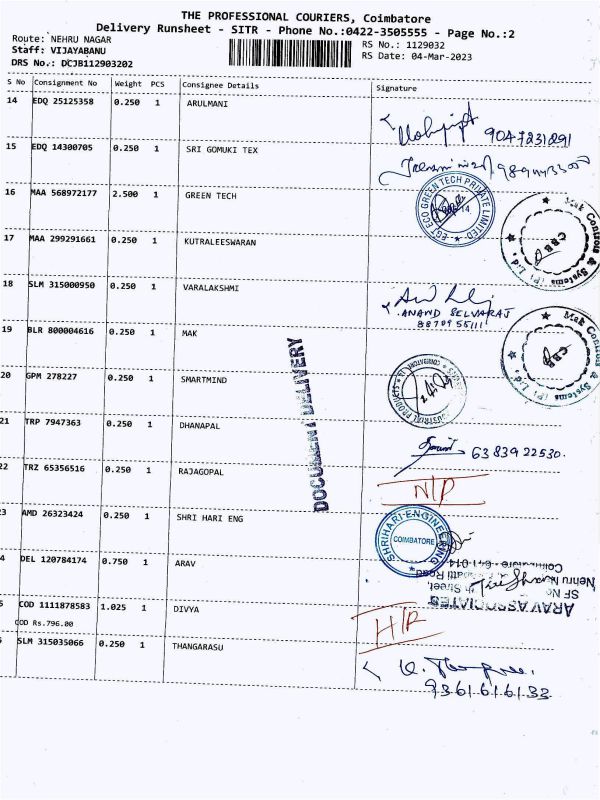 THE PROFESSIONAL COURIERS, Coimbatore
Delivery Runsheet - SITR - Phone No.:0422-3505555 - Page No.:2
Route: NEHRU NAGAR
RS No.: 1129032
Staff: VIJAYABANU
RS Date: 04-Mar-2023
DRS No.: DCJB112903202
S No Consignment No Weight PCS Consignee Details Signature
14 EDQ 25125358 0.250 1 ARULMANI
9047231291
15 EDQ 14300705 0.250 1 SRI GOMUKI TEX
16 MAA 568972177 2.500 1 GREEN TECH
EGT ECO GREEN TECH PRIVATE LIMITED
Mak Controls & Systems (P) Ltd.,
CBE
17 MAA 299291661 0.250 1 KUTRALEESWARAN
18 SLM 315000950 0.250 1 VARALAKSHMI
ANAND SELVARAJ
8870955111
19 BLR 800004616 0.250 1 MAK
Mak Controls & Systems (P) Ltd.,
CBE
20 GPM 278227 0.250 1 SMARTMIND
INDUSTRIAL PRODUCTS
COIMBATORE
DOCUMENT DELIVERY
21 TRP 7947363 0.250 1 DHANAPAL
6383922530.
22 TRZ 65356516 0.250 1 RAJAGOPAL
N/P
23 AMD 26323424 0.250 1 SHRI HARI ENG
SHRIHARI ENGINEERING
COIMBATORE
4 DEL 120784174 0.750 1 ARAV
ARAV ASSOCIATES
SF No
Nehru N
Street,
Road
Coimbatore - 641 014
5 COD 1111878583 1.025 1 DIVYA
COD Rs.796.00
H/R
SLM 315035066 0.250 1 THANGARASU
9361616133